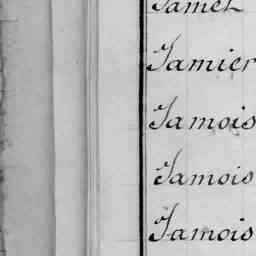 Jamet
Jamier
Jamois
Jamois
Jamois